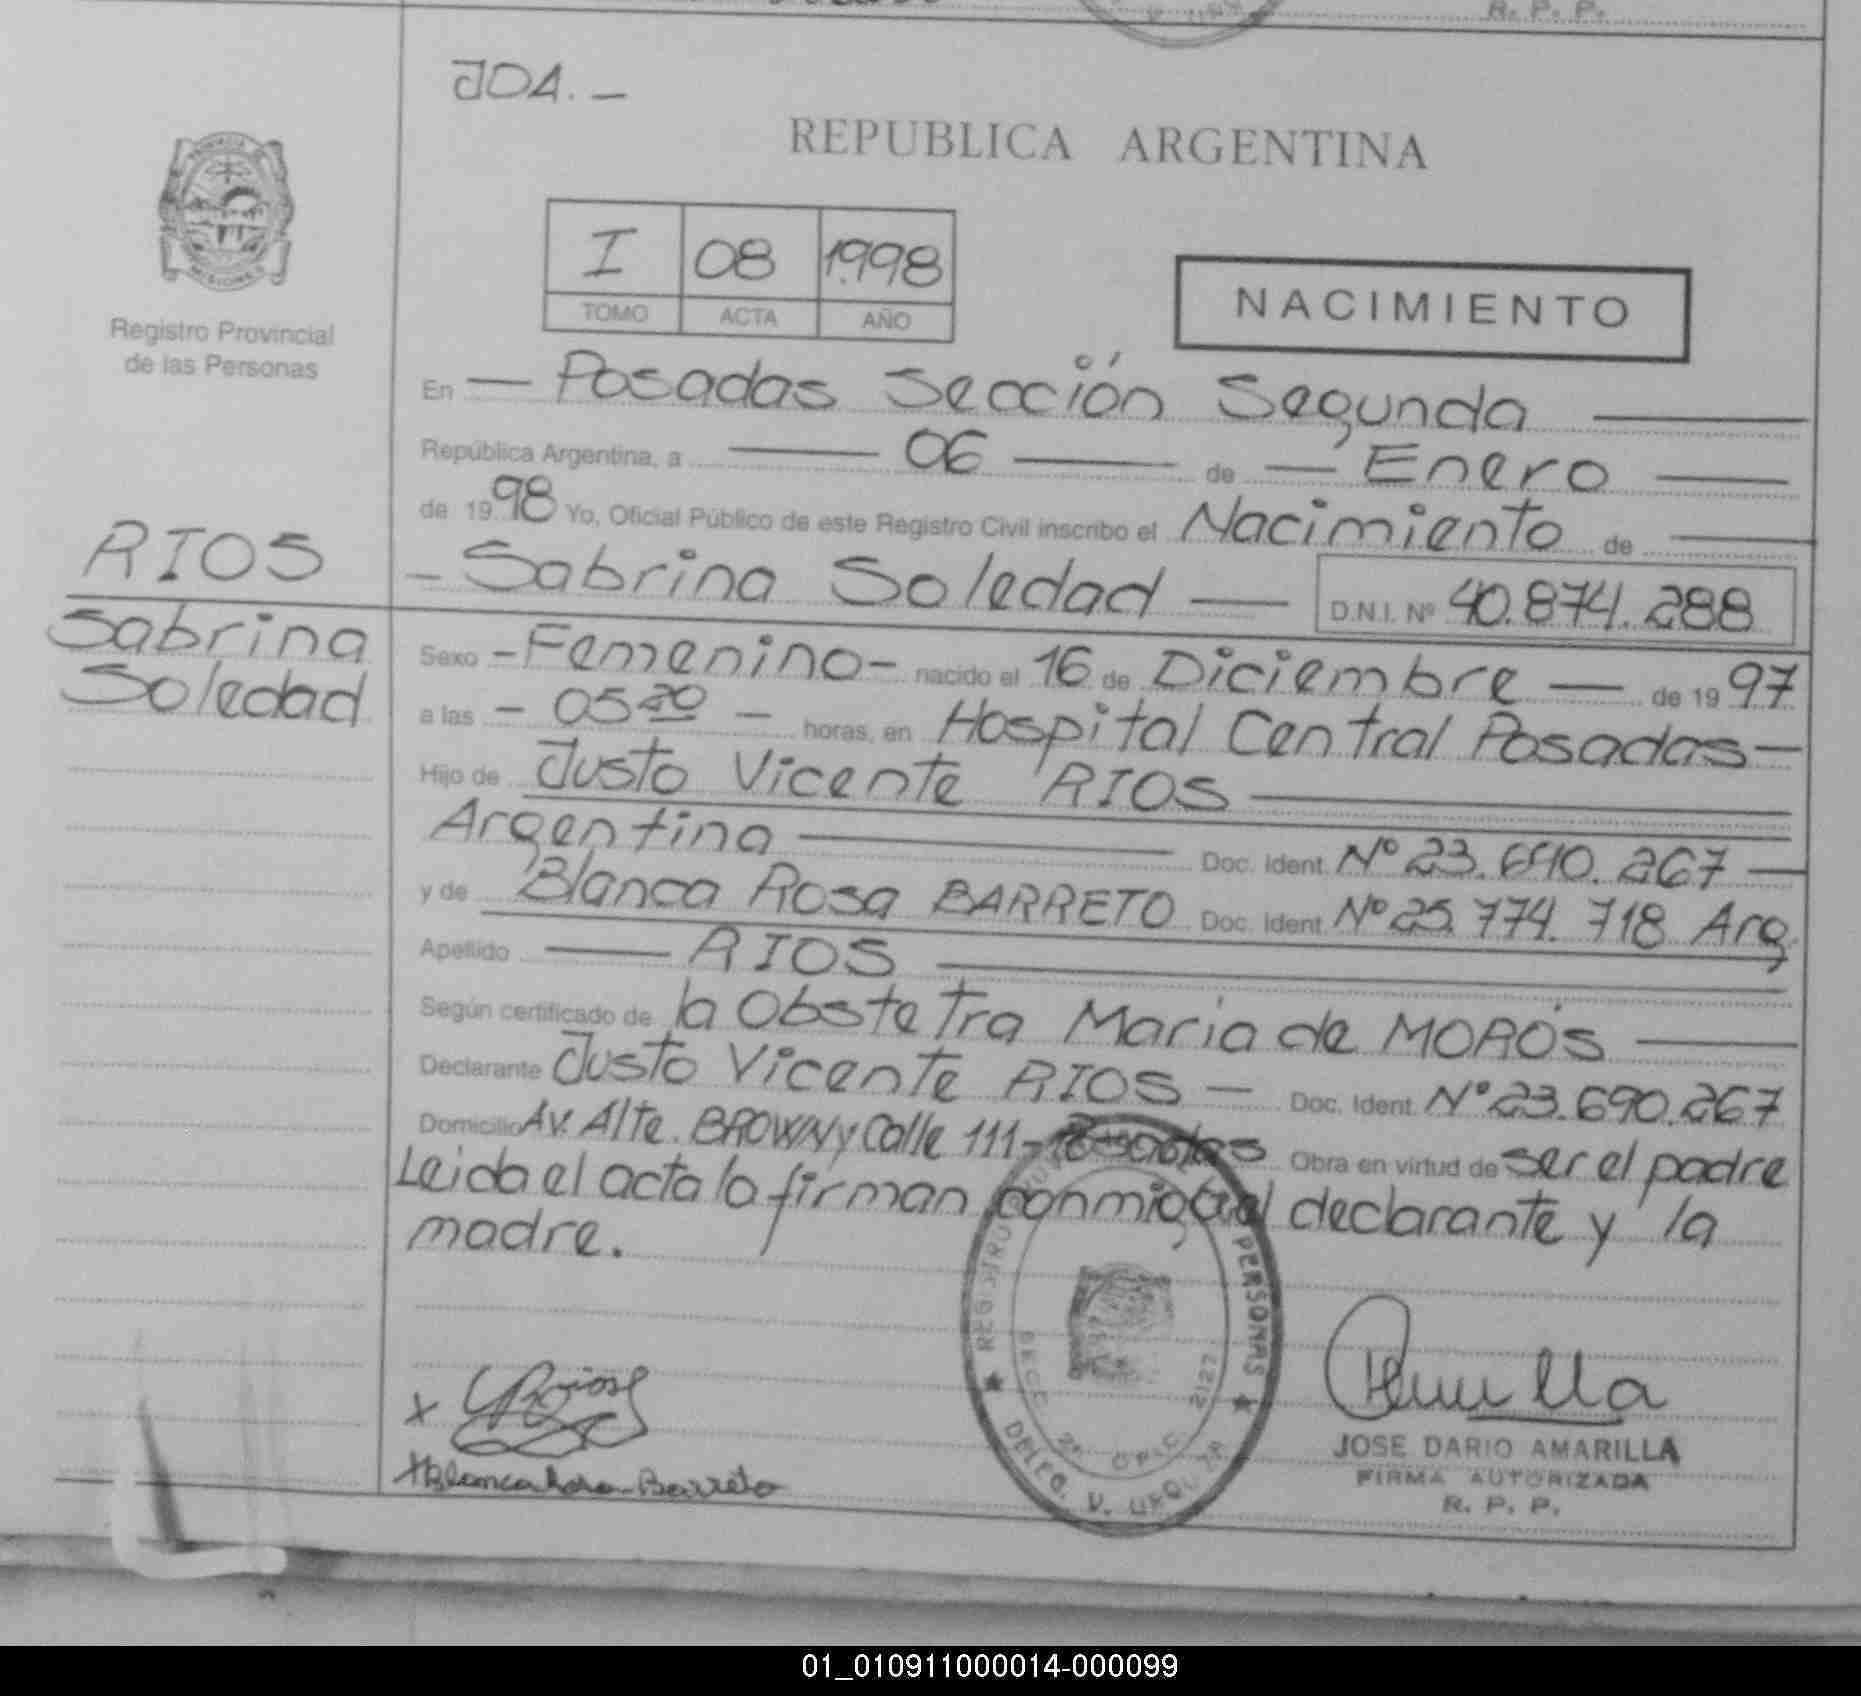 R. P. P.
JDA. _
REPUBLICA ARGENTINA
I 08 1998
TOMO ACTA AÑO
NACIMIENTO
Registro Provincial
de las Personas
En — Posadas Sección Segunda —
República Argentina, a — 06 — de — Enero —
de 1998 Yo, Oficial Público de este Registro Civil inscribo el Nacimiento de —
RIOS
Sabrina
Soledad
- Sabrina Soledad — D.N.I. Nº 40.874.288
Sexo - Femenino - nacido el 16 de Diciembre — de 1997
a las - 05 20 - horas, en Hospital Central Posadas —
Hijo de Justo Vicente RIOS —
Argentina — Doc. Ident. Nº 23.690.267 —
y de Blanca Rosa BARRETO Doc. Ident. Nº 25.774.718 Arg.
Apellido — RIOS —
Según certificado de la Obstetra Maria de MOROS —
Declarante Justo Vicente RIOS — Doc. Ident. Nº 23.690.267
Domicilio Av. Alte. BROWN y Calle 111 - Posadas Obra en virtud de ser el padre
Leida el acta la firman conmigo el declarante y la
madre.
REGISTRO PERSONAS
SECC. 2ª OFIC. 2127
DELEG. V. URQUIZA
x
x Blanca Rosa Barreto
JOSE DARIO AMARILLA
FIRMA AUTORIZADA
R. P. P.
01_010911000014-000099